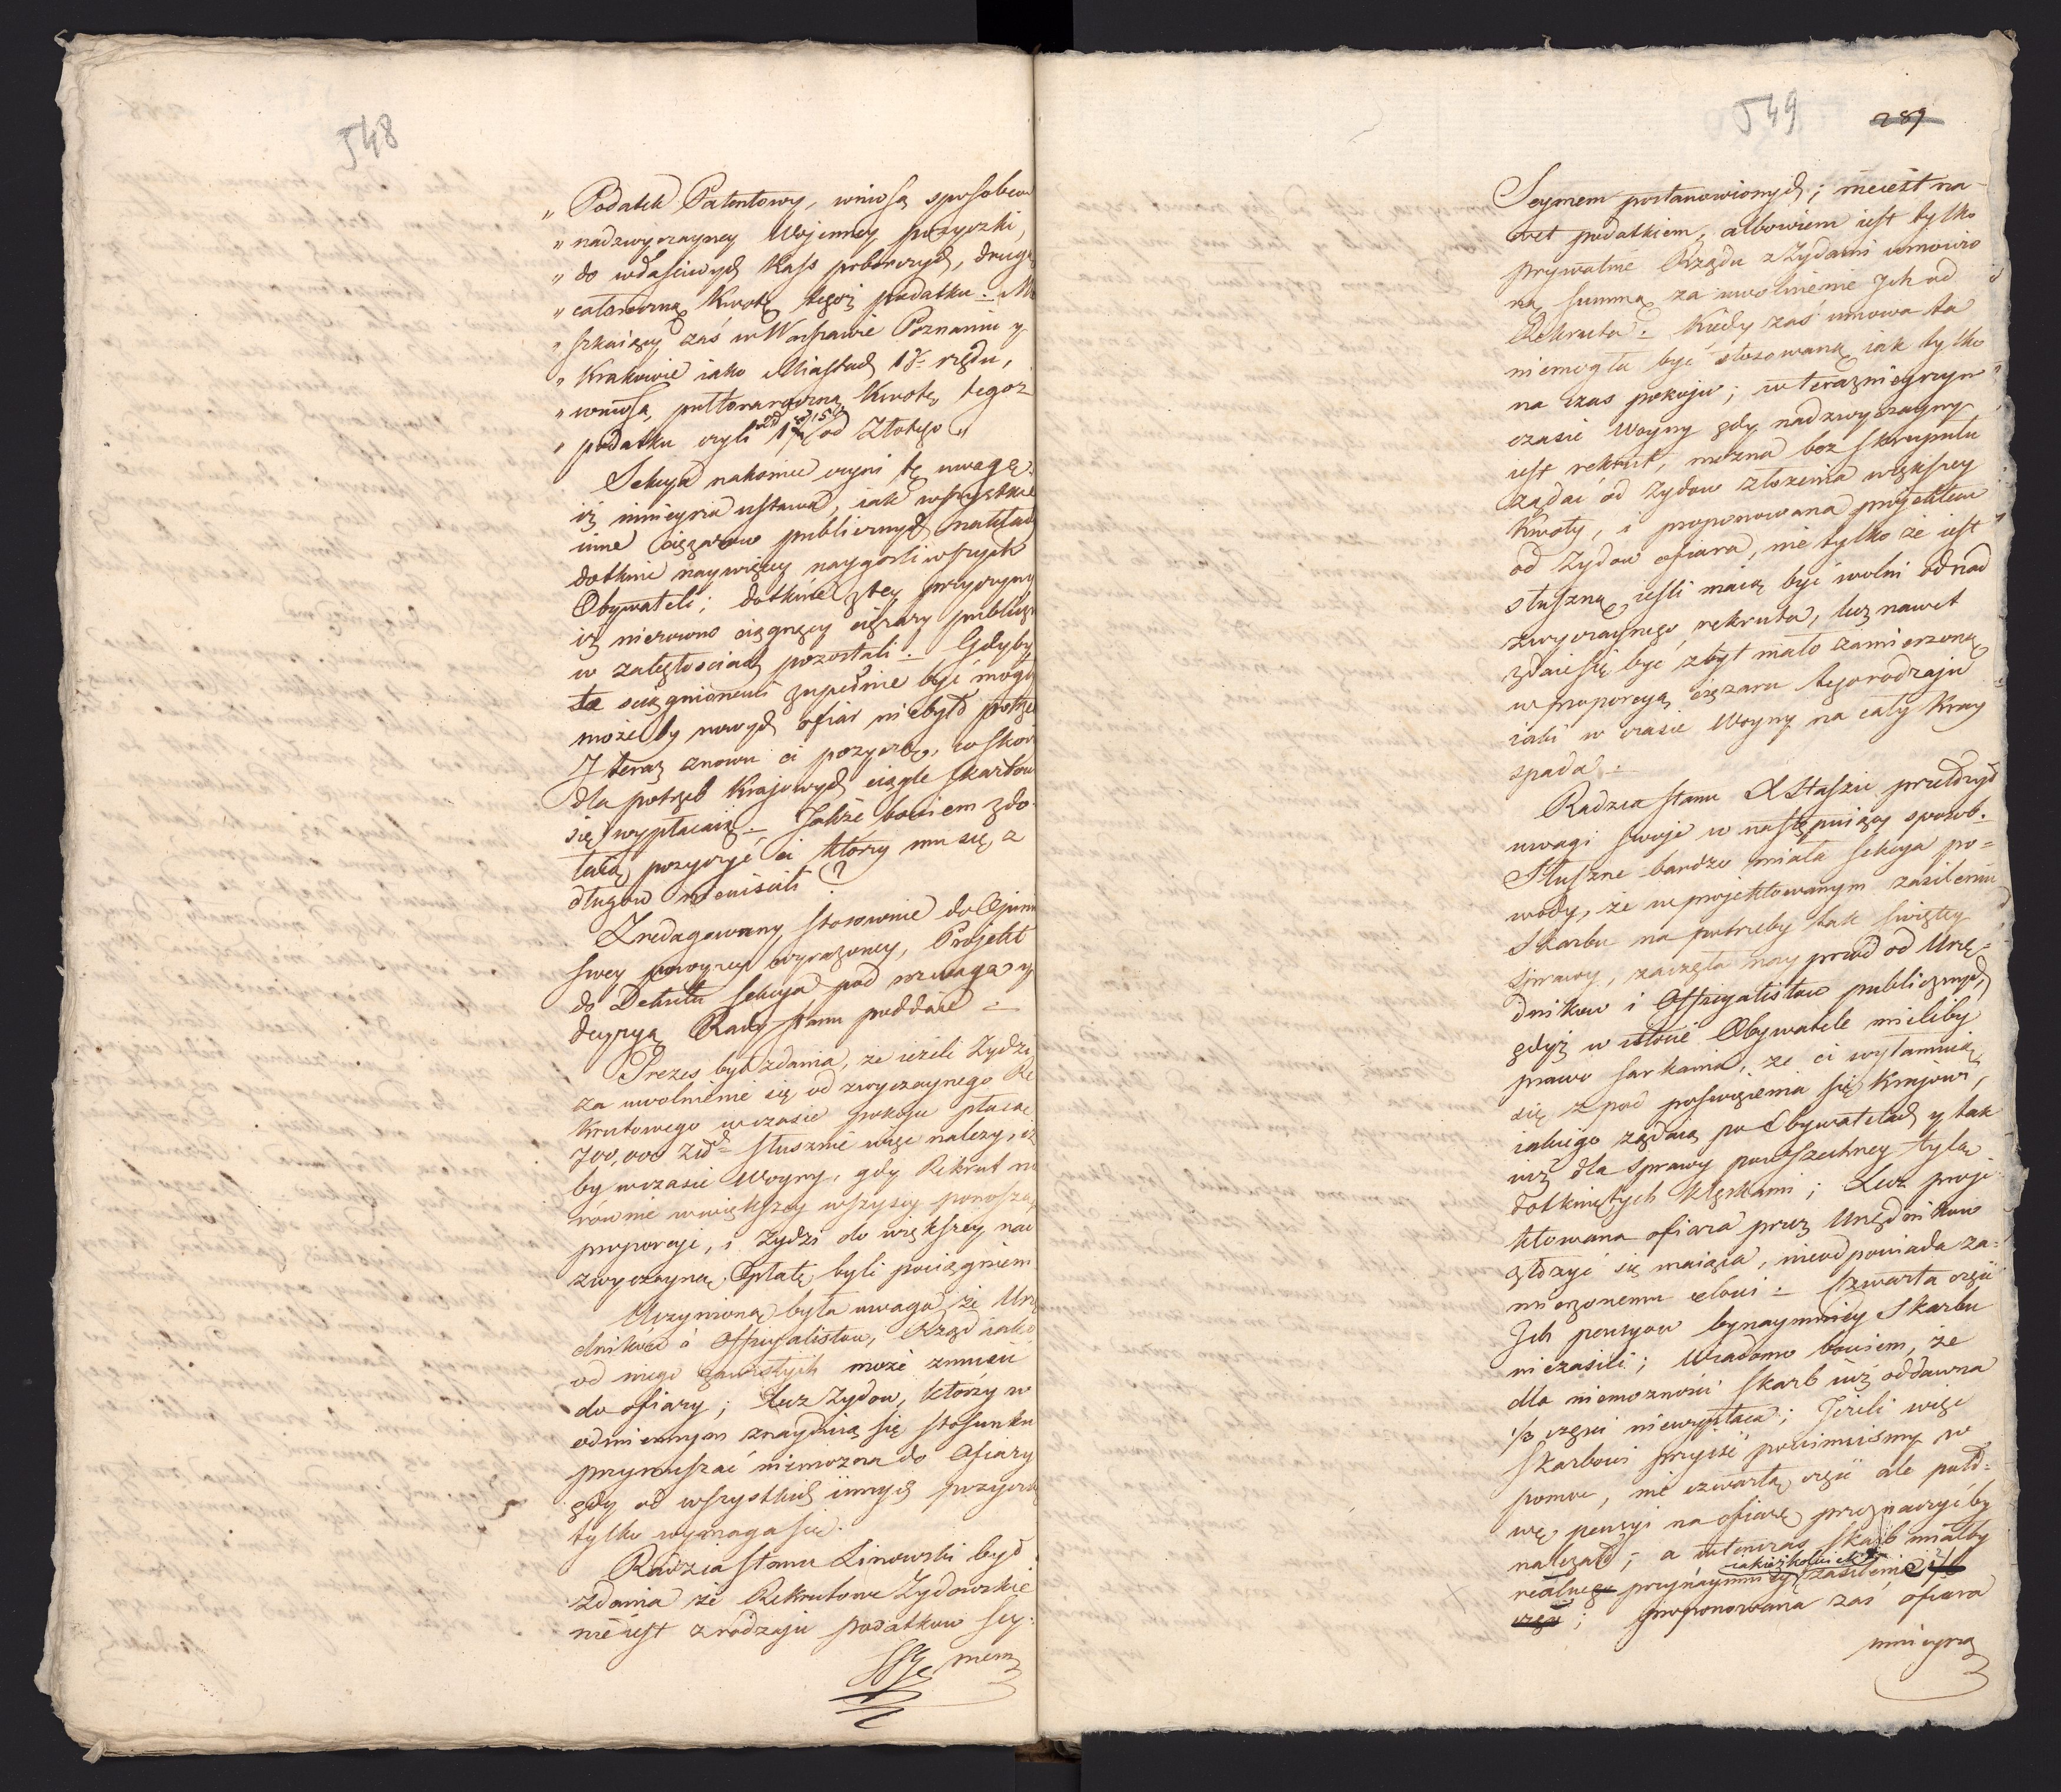 548
„ Podatek Patentowy, wniosą sposobem
„ nadzwyczayney Wojenney pożyczki,
„ do właściwych Kass poborczych, drugą
„ całoroczną Kwotę tegoż podatku. Mi
„ szkaiący zaś w Warszawie Poznaniu y
„ Krakowie iako Miastach 1º rzędu,
„ wniosą półtoraroczną Kwotę tegoż
„ podatku czyli od Złotego „
Sekcya nakoniec czyni tę uwagę
iż ninieysza ustawa, iak wszystkie
inne ciężarow publicznych nakłady
dotknie naywięcey naygorliwszych
Obywateli; dotknie z tey przyczyny
iż nierowno ciągnący ciężary publiczn
w zaległosciach pozostali. Gdyby
te sciągnionemi zupełnie być mogły
może by nowych ofiar niebyło potrze
I teraz znowu ci pożyczą, co skoro
dla potrzeb Krajowych ciągle Skarbow
się wypłacaią. Jakże bowiem zdo-
łaią pożyczyć ci którzy mu się z
długow nieuiscili?
Zredagowany stosownie do Opinii
swey powyżey wyrażoney, Projekt
do Dekretu Sekcya pod rozwagę y
decyzyą Rady Stanu poddaie.
Prezes był zdania, ze ieżeli Zydzi
za uwolnienie się od zwyczaynego Re
krutowego wczasie pokoju płacą
700,000 Złº słusznie więc należy, iż
by wczasie Woyny, gdy Rekrut nie
rownie wwiększey wszyscy ponoszą
proporcyi, i Zydzi do większey nad
zwyczayną Opłatę byli pociągnieni
Uczynioną była uwaga że Urzę
dnikow i Officyalistow, Rząd iako
od niego zawisłych może zmusić
do ofiary; Lecz Zydow, którzy w
odmiennym znayduią się stosunku
przymuszać niemożna do Ofiary
gdy od wszystkich innych pożyczki
tylko wymaga się.
Radzca Stanu Linowski był
zdania że Rekrutowe Zydowskie
nieiest zrodzaju podatkow Sey-
mem
549
289
Seymem postanowionych; nieiest na-
wet podatkiem, albowiem iest tylko
prywatnie Rządu z Zydami umowio
ną summą za uwolnienie Ich od
Rekruta. Kiedy zaś umowa ta
niemogła być stosowaną iak tylko
na czas pokoju; w teraznieyszym
czasie Woyny gdy nadzwyczayny
iest rekrut, można bez skrupułu
żądać od Zydow złożenia większey
Kwoty, i proponowana projektem
od Zydow ofiara, nie tylko że iest
słuszną, iesli maią być wolni od nad
zwyczaynego rekruta, lecz nawet
zdaie się być zbyt mało zamierzoną
w proporcyą ciężaru tego rodzaju
iaki w czasie Woyny na cały Kray
spada.
Radzca Stanu X Staszic przełożył
uwagi swoje w następuiący sposob.
Słuszne bardzo miała Sekcya po-
wody, że w projektowanym zasileniu
Skarbu na potrzeby tak swiętey
Sprawy, zaczęła nay przod od Urzę-
dnikow i Officyalistow publicznych,
gdyż w istocie Obywatele mieliby
prawo sarkania, że ci wyłamuią
się z pod poswięcenia się Krajowi,
iakiego żądaią po Obywatelach y tak
iuż dla sprawy powszechney tylą
dotkniętych klęskami; Lecz proje
ktowana ofiara przez Urzędnikow
złożyć się maiąca, nieodpowiada za-
mierzonemu celowi. Czwarta część
Ich pensyow bynaymniey Skarbu
niezasili; Wiadomo bowiem, że
dla niemożności Skarb iuż oddawna
1/3 części niewypłaca; Jeżeli więc
Skarbowi przyiść powinnismy w
pomoc, nie czwartą część ale poło-
wę pensyi na ofiarę przeznaczyćby
należało; a wtenczas Skarb miałby
iakieżkolwiek
realnego przynaymniey zasilenie
część; proponowana zaś ofiara
ninieyszą